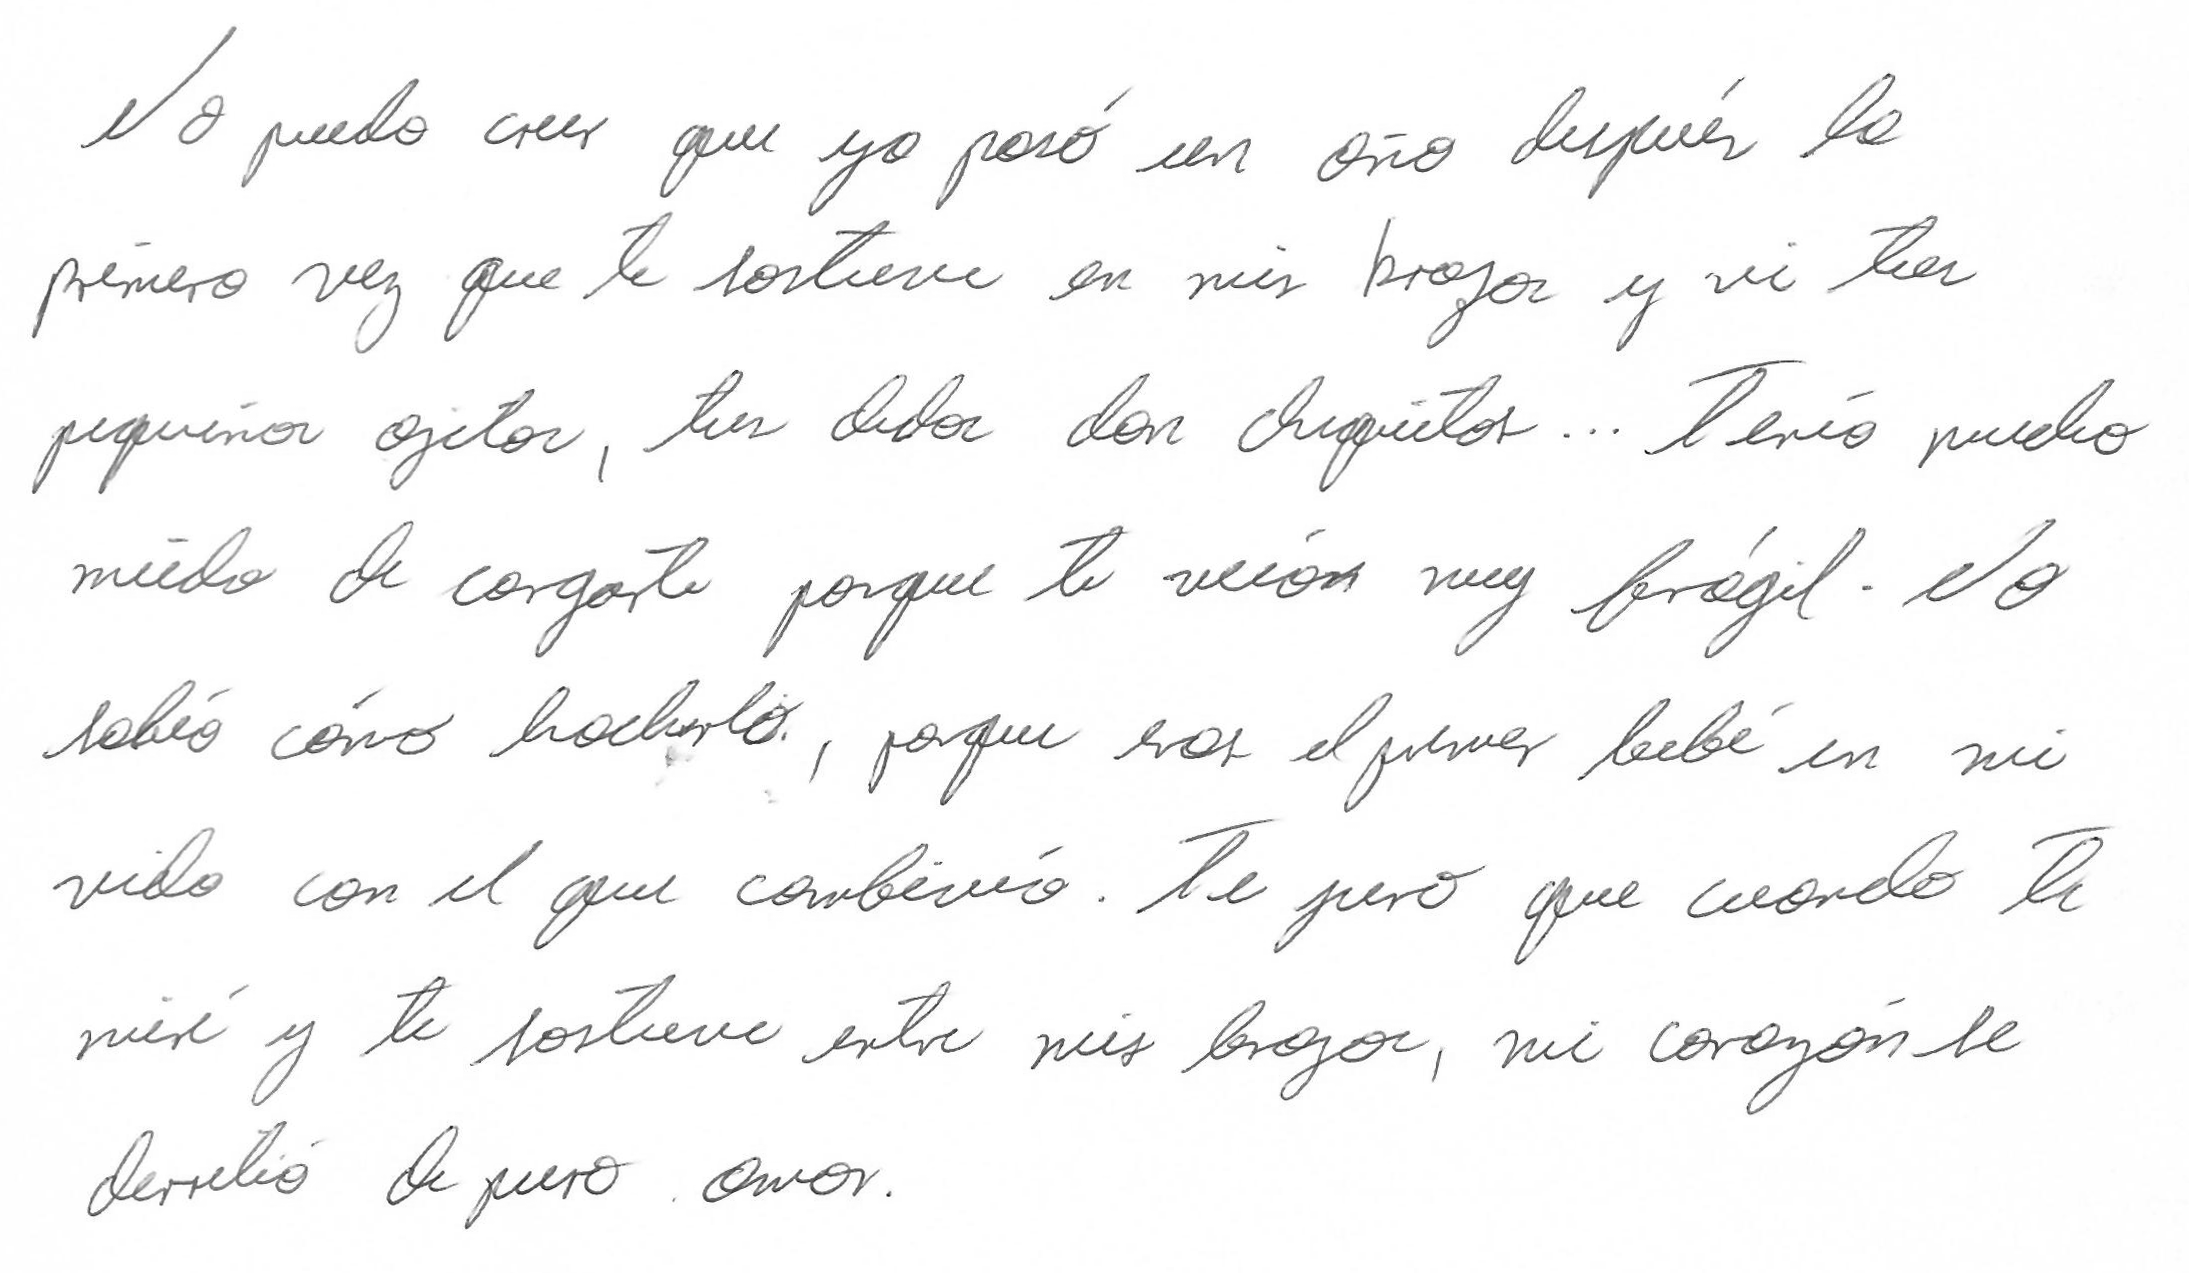 No puedo creer que ya pasó un año después la
primera vez que te sostuve en mis brazos y vi tus
pequeños ojitos, tus dedos dan chiquitos... Tenía mucho
miedo de cargarte porque te veías muy frágil. No
sabía cómo hacherlo, porque eras el primer bebé en mi
vida con el que convivía. Te juro que cuando te
miré y te sostuve entre mis brazos, mi corazón se
derritió de puro amor.